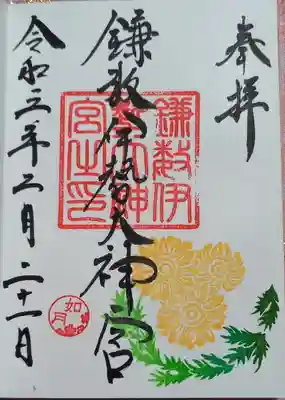 奉拝
鎌数伊勢大神宮
令和三年二月二十一日
鎌数伊
勢大神
宮之印
如月